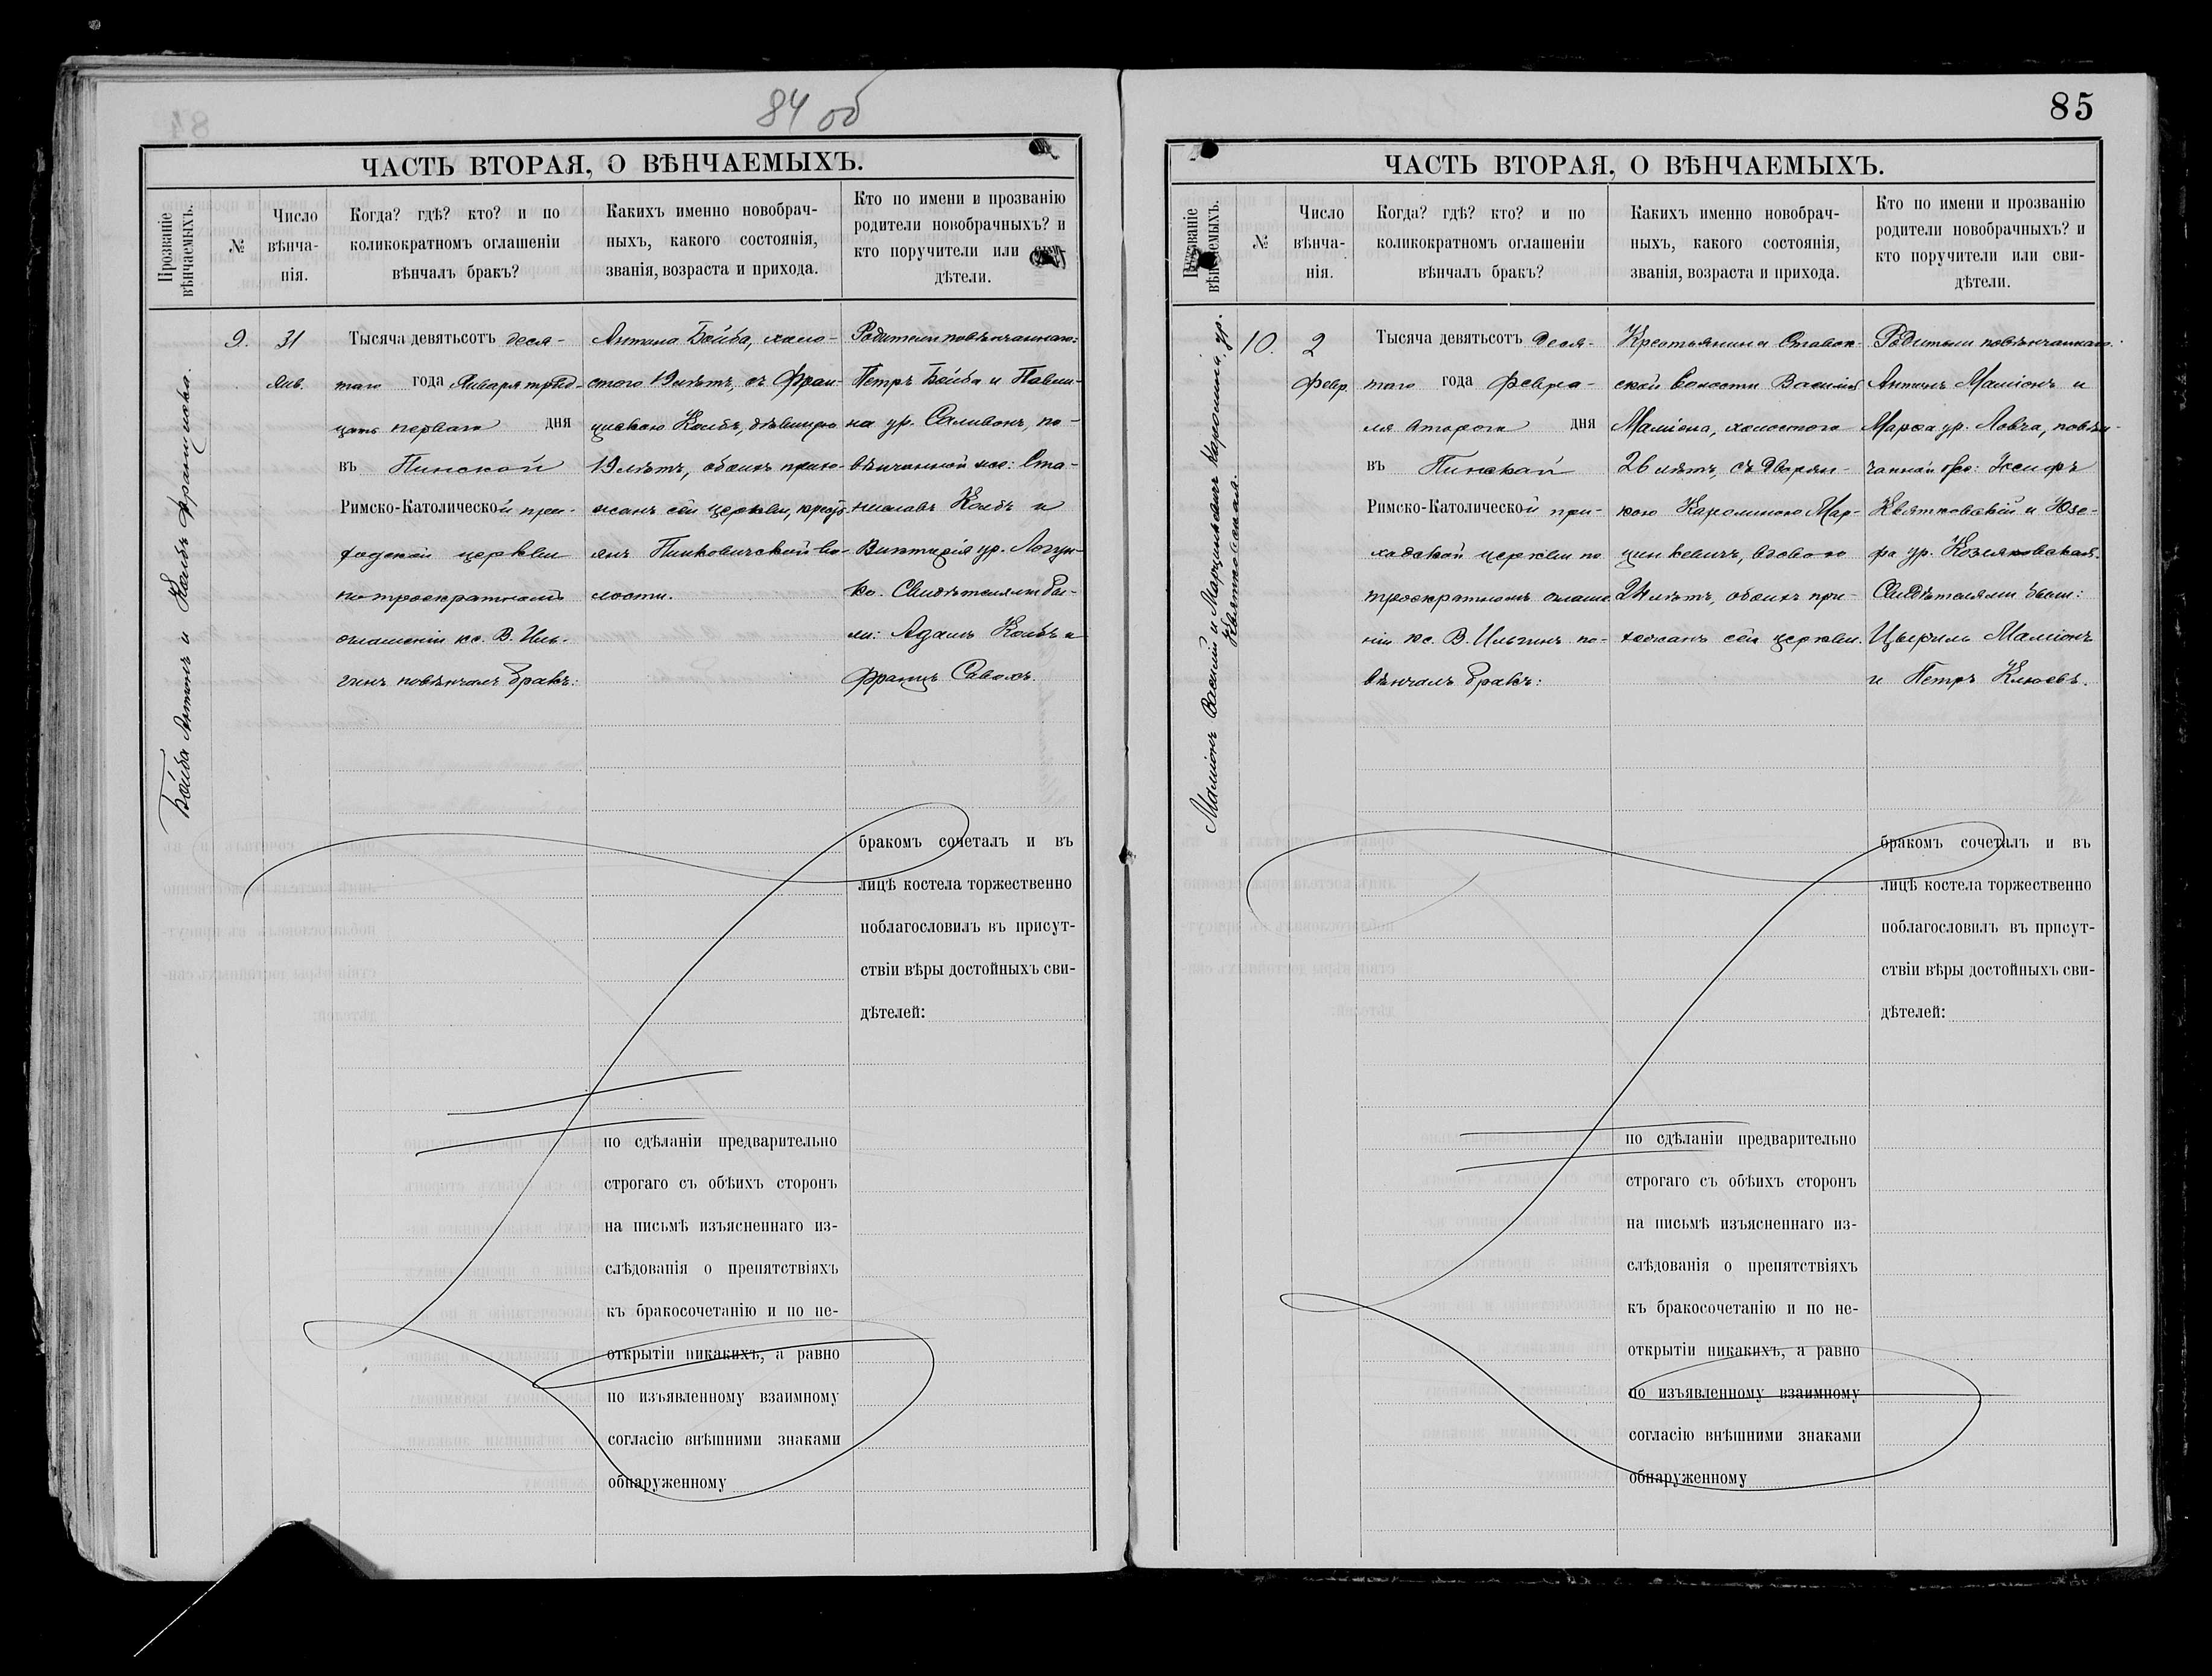 84 об
ЧАСТЬ ВТОРАЯ, О ВѢНЧАЕМЫХЪ.
Прозваніе вѣнчаемыхъ.
№
Число вѣнча-
нія.
Когда? гдѣ? кто? и по
коликократномъ оглашеніи
вѣнчалъ бракъ?
Какихъ именно новобрач-
ныхъ, какого состоянія,
званія, возраста и прихода.
Кто по имени и прозванію
родители новобрачныхъ? и
кто поручители или сви-
дѣтели.
Бойба Антонъ и Колбъ Франциска.
9.
31
Янв.
Тысяча девятьсотъ деся-
таго года Января трид-
цать перваго дня
въ Пинской
Римско-Католической при-
ходской церкви
по троекратномъ
оглашеніи кс. В. Иль-
гинъ повѣнчалъ бракъ:
Антона Бойба, холо-
стого 19 лѣтъ, съ Фран-
цискою Колбъ, дѣвицею
19 лѣтъ, обоихъ прихо-
жанъ сей церкви, крест
янъ Пинковичской во-
лости.
Родители повѣнчаннаго:
Петръ Бойба и Павли-
на ур. Селивонъ, по-
вѣнчанной же: Ста-
ниславъ Колбъ и
Викторія ур. Логун-
ко. Свидѣтелями бы-
ли: Адамъ Колбъ и
Францъ Савохъ.
бракомъ сочеталъ и въ
лицѣ костела торжественно
поблагословилъ въ присут-
ствіи вѣры достойныхъ сви-
дѣтелей:
по сдѣланіи предварительно
строгаго съ обѣихъ сторонъ
на письмѣ изъясненнаго из-
слѣдованія о препятствіяхъ
къ бракосочетанію и по не-
открытіи никакихъ, а равно
по изъявленному взаимному
согласію внѣшними знаками
обнаруженному
85
ЧАСТЬ ВТОРАЯ, О ВѢНЧАЕМЫХЪ.
Прозваніе вѣнчаемыхъ.
№
Число вѣнча-
нія.
Когда? гдѣ? кто? и по
коликократномъ оглашеніи
вѣнчалъ бракъ?
Какихъ именно новобрач-
ныхъ, какого состоянія,
званія, возраста и прихода.
Кто по имени и прозванію
родители новобрачныхъ? и
кто поручители или сви-
дѣтели.
Маліонъ Василій и Марцинкевичъ Каролина ур.
Квятковская.
10.
2
Февр.
Тысяча девятьсотъ деся-
таго года Февра-
ля второго дня
въ Пинской
Римско-Католической при-
ходской церкви по
троекратномъ оглаше
ніи кс. В. Ильгинъ по-
вѣнчалъ бракъ:
Крестьянина Ставок-
ской волости Василія
Маліона, холостого
26 лѣтъ, съ дворян-
кою Каролиною Мар-
цинкевичъ, вдовою
24 лѣтъ, обоихъ при-
хожанъ сей церкви.
Родители повѣнчаннаго:
Антонъ Маліонъ и
Марѳа ур. Ловча, повѣн-
чанной же: Іосифъ
Квятковскій и Юзе-
фа ур. Козляковская.
Свидѣтелями были:
Цыриль Маліонъ
и Петръ Клюевъ.
бракомъ сочеталъ и въ
лицѣ костела торжественно
поблагословилъ въ присут-
ствіи вѣры достойныхъ сви-
дѣтелей:
по сдѣланіи предварительно
строгаго съ обѣихъ сторонъ
на письмѣ изъясненнаго из-
слѣдованія о препятствіяхъ
къ бракосочетанію и по не-
открытіи никакихъ, а равно
по изъявленному взаимному
согласію внѣшними знаками
обнаруженному